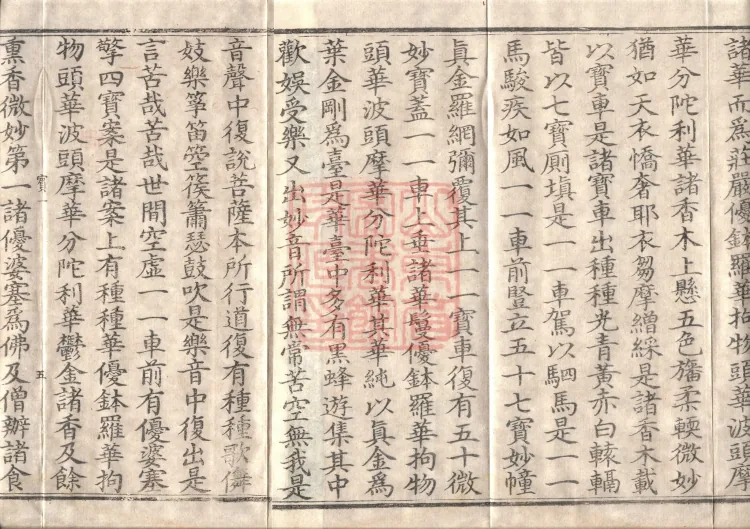 諸華而爲莊嚴優鉢羅華拘物頭華波頭摩
華分陀利華諸香木上懸五色旛柔輭微妙
猶如天衣憍奢耶衣芻摩繒綵是諸香木載
以寶車是諸寶車出種種光青黃赤白轅轄
皆以七寶厠塡是一一車駕以駟馬是一一
馬駿疾如風一一車前豎立五十七寶妙幢
眞金羅網彌覆其上一一寶車復有五十微
妙寶蓋一一車上垂諸華鬘優鉢羅華拘物
頭華波頭摩華分陀利華其華純以眞金爲
葉金剛爲臺是華臺中多有黑蜂遊集其中
歡娛受樂又出妙音所謂無常苦空無我是
音聲中復說菩薩本所行道復有種種歌儛
妓樂箏笛箜篌簫瑟鼓吹是樂音中復出是
言苦哉苦哉世間空虛一一車前有優婆塞
擎四寶案是諸案上有種種華優鉢羅華拘
物頭華波頭摩華分陀利華鬱金諸香及餘
寶一 五
熏香微妙第一諸優婆塞爲佛及僧辦諸食